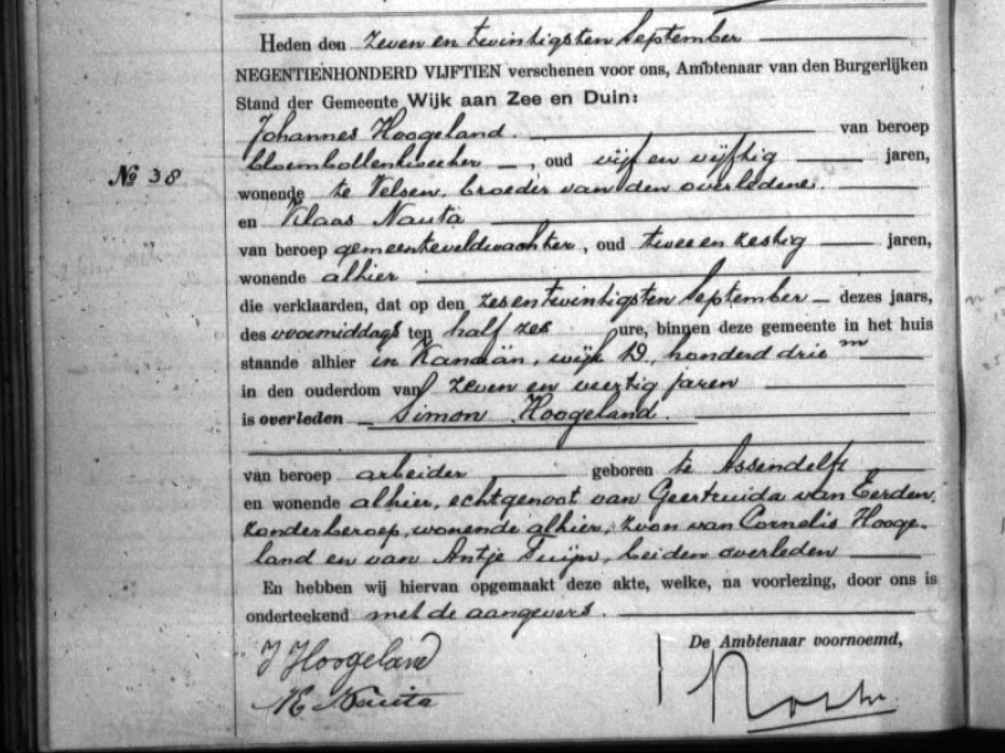 Heden den zeven en twintigsten September
NEGENTIENHONDERD VIJFTIEN verschenen voor ons, Ambtenaar van den Burgerlijken
Stand der Gemeente Wijk aan Zee en Duin:
Johannes Hoogeland. van beroep
bloembollenkweeker, oud vijf en vijftig jaren,
No 38
wonende te Velsen, broeder van den overledene.
en Klaas Nauta
van beroep gemeenteveldwachter, oud twee en zestig jaren,
wonende alhier
die verklaarden, dat op den zes en twintigsten September dezes jaars,
des voormiddags ten half zes ure, binnen deze gemeente in het huis
staande alhier in Kanaän, wijk D, honderd drie m
in den ouderdom van zeven en veertig jaren
is overleden Simon Hoogeland.
van beroep arbeider geboren te Assendelft
en wonende alhier, echtgenoot van Geertruida van Eerden,
zonder beroep, wonende alhier, zoon van Cornelis Hooge-
land en van Antje Tuijn, beiden overleden
En hebben wij hiervan opgemaakt deze akte, welke, na voorlezing, door ons is
onderteekend met de aangevers.
De Ambtenaar voornoemd,
J Hoogeland
Nauta